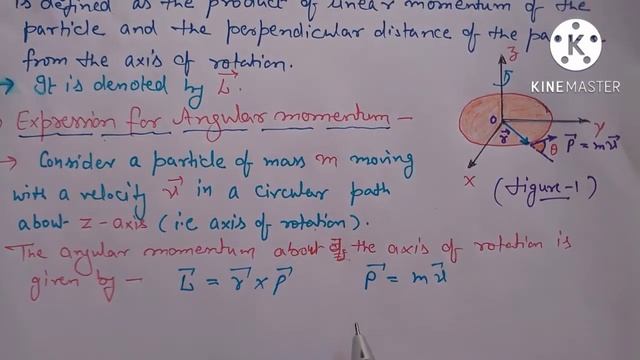 is defined as the product of linear momentum of the
particle and the perpendicular distance of the
from the axis of rotation.
→ It is denoted by L⃗.
Expression for Angular momentum –
→ Consider a particle of mass m moving
with a velocity v⃗ in a circular path
about z-axis (i.e axis of rotation).
The angular momentum about the axis of rotation is
given by – L⃗ = r⃗ × P⃗ P⃗ = m v⃗
z
O
y
r⃗
θ
P⃗ = m v⃗
X
(figure-1)
K
KINEMASTER